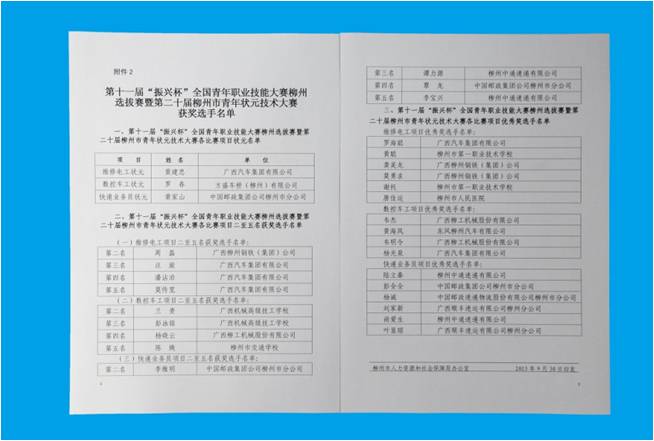 附件 2
第十一届“振兴杯”全国青年职业技能大赛柳州
选拔赛暨第二十届柳州市青年状元技术大赛
获奖选手名单
一、第十一届“振兴杯”全国青年职业技能大赛柳州选拔赛暨第
二十届柳州市青年状元技术大赛各比赛项目状元名单
项 目 姓 名 单 位
维修电工状元 黄建忠 广西汽车集团有限公司
数控车工状元 罗 春 方盛车桥(柳州)有限公司
快递业务员状元 黄家山 中国邮政集团公司柳州市分公司
二、第十一届“振兴杯”全国青年职业技能大赛柳州选拔赛暨第
二十届柳州市青年状元技术大赛各比赛项目二至五名获奖选手名单
(一)维修电工项目二至五名获奖选手名单:
第二名 周 磊 广西柳州钢铁(集团)公司
第三名 汪 广西汽车集团有限公司
第四名 潘沾治 广西汽车集团有限公司
第五名 莫传宽 广西汽车集团有限公司
(二)数控车工项目二至五名获奖选手名单:
第二名 兰 贵 广西机械高级技工学校
第三名 彭泳铭 广西机械高级技工学校
第四名 杨晓云 广西柳工机械股份有限公司
第五名 陈 柳州市交通学校
(三)快递业务员项目二至五名获奖选手名单:
第二名 李维明 中国邮政集团公司柳州市分公司
第三名 谭力源 柳州中通速递有限公司
第四名 覃 龙 中国邮政集团公司柳州市分公司
第五名 李宝兴 柳州中通速递有限公司
三、第十一届“振兴杯”全国青年职业技能大赛柳州选拔赛暨第
二十届柳州市青年状元技术大赛各比赛项目优秀奖选手名单
维修电工项目优秀奖选手名单:
罗海 广西汽车集团有限公司
黄聪 柳州市第一职业技术学校
龚昊龙 广西柳州钢铁(集团)公司
莫勇求 广西柳州钢铁(集团)公司
谢托 柳州市第一职业技术学校
唐佳运 柳州市人民医院
数控车工项目优秀奖选手名单:
韦杰 广西柳工机械股份有限公司
黄海凤 东风柳州汽车有限公司
韦明今 广西柳工机械股份有限公司
杨光泉 广西汽车集团有限公司
快递业务员项目优秀奖选手名单:
陆文春 柳州中通速递有限公司
彭全全 中国邮政集团公司柳州市分公司
杨诚 中国邮政速递物流股份有限公司柳州市分公司
刘军新 广西顺丰速运有限公司柳州分公司
尚爱生 柳州中通速递有限公司
叶昱瑶 广西顺丰速运有限公司柳州分公司
柳州市人力资源和社会保障局办公室 2015 年 9 月 30 日印发